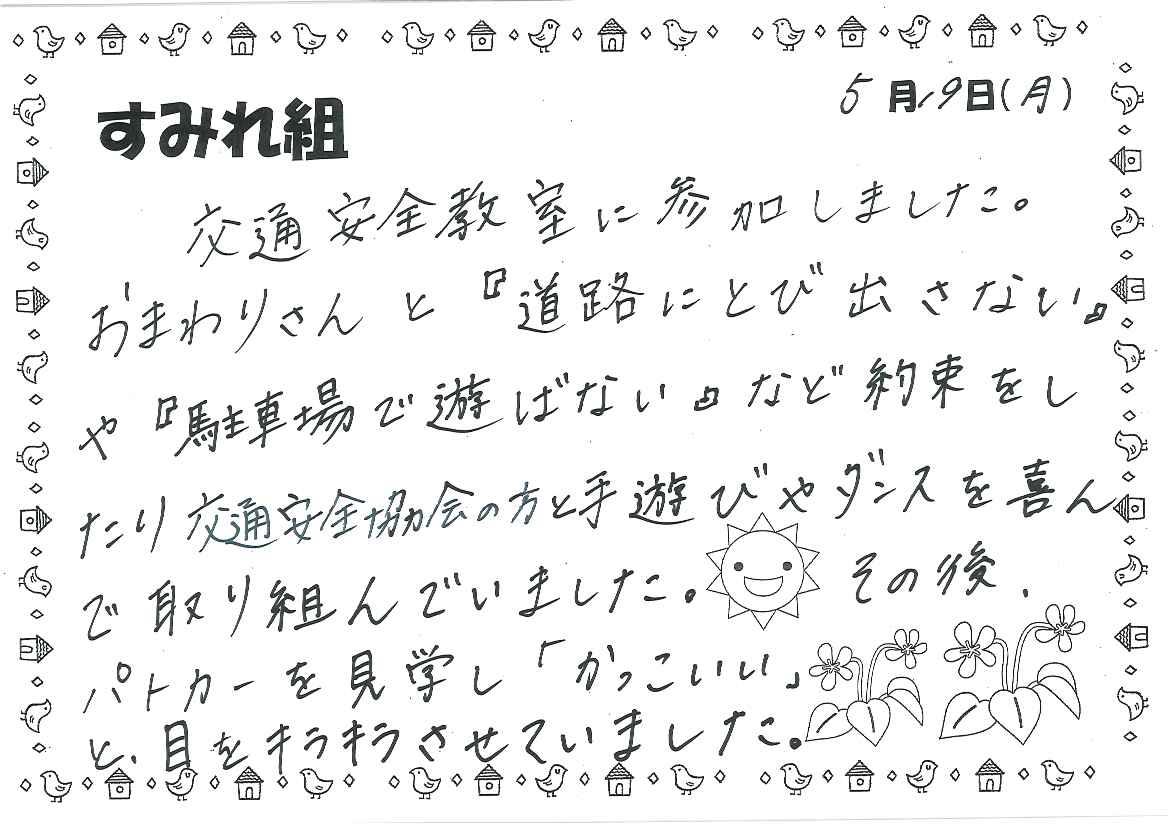 5月19日(月)
すみれ組
交通安全教室に参加しました。
おまわりさんと『道路にとび出さない』
や『駐車場で遊ばない』など約束をし
たり交通安全協会の方と手遊びやダンスを喜ん
で取り組んでいました。その後、
パトカーを見学し「かっこいい」
と、目をキラキラさせていました。